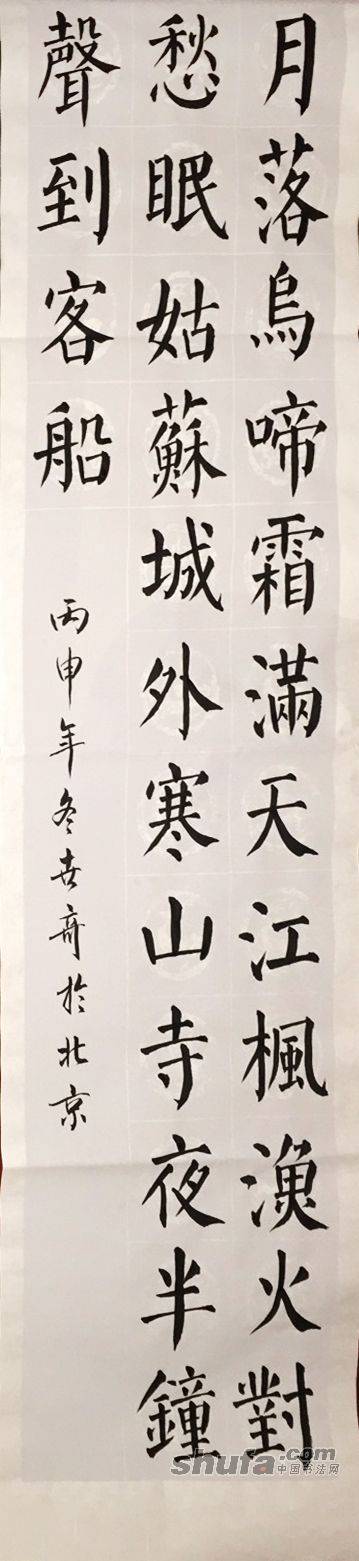 月落烏啼霜滿天江楓漁火對
愁眠姑蘇城外寒山寺夜半鐘
聲到客船
丙申年冬於北京
shufa.com
中国书法网